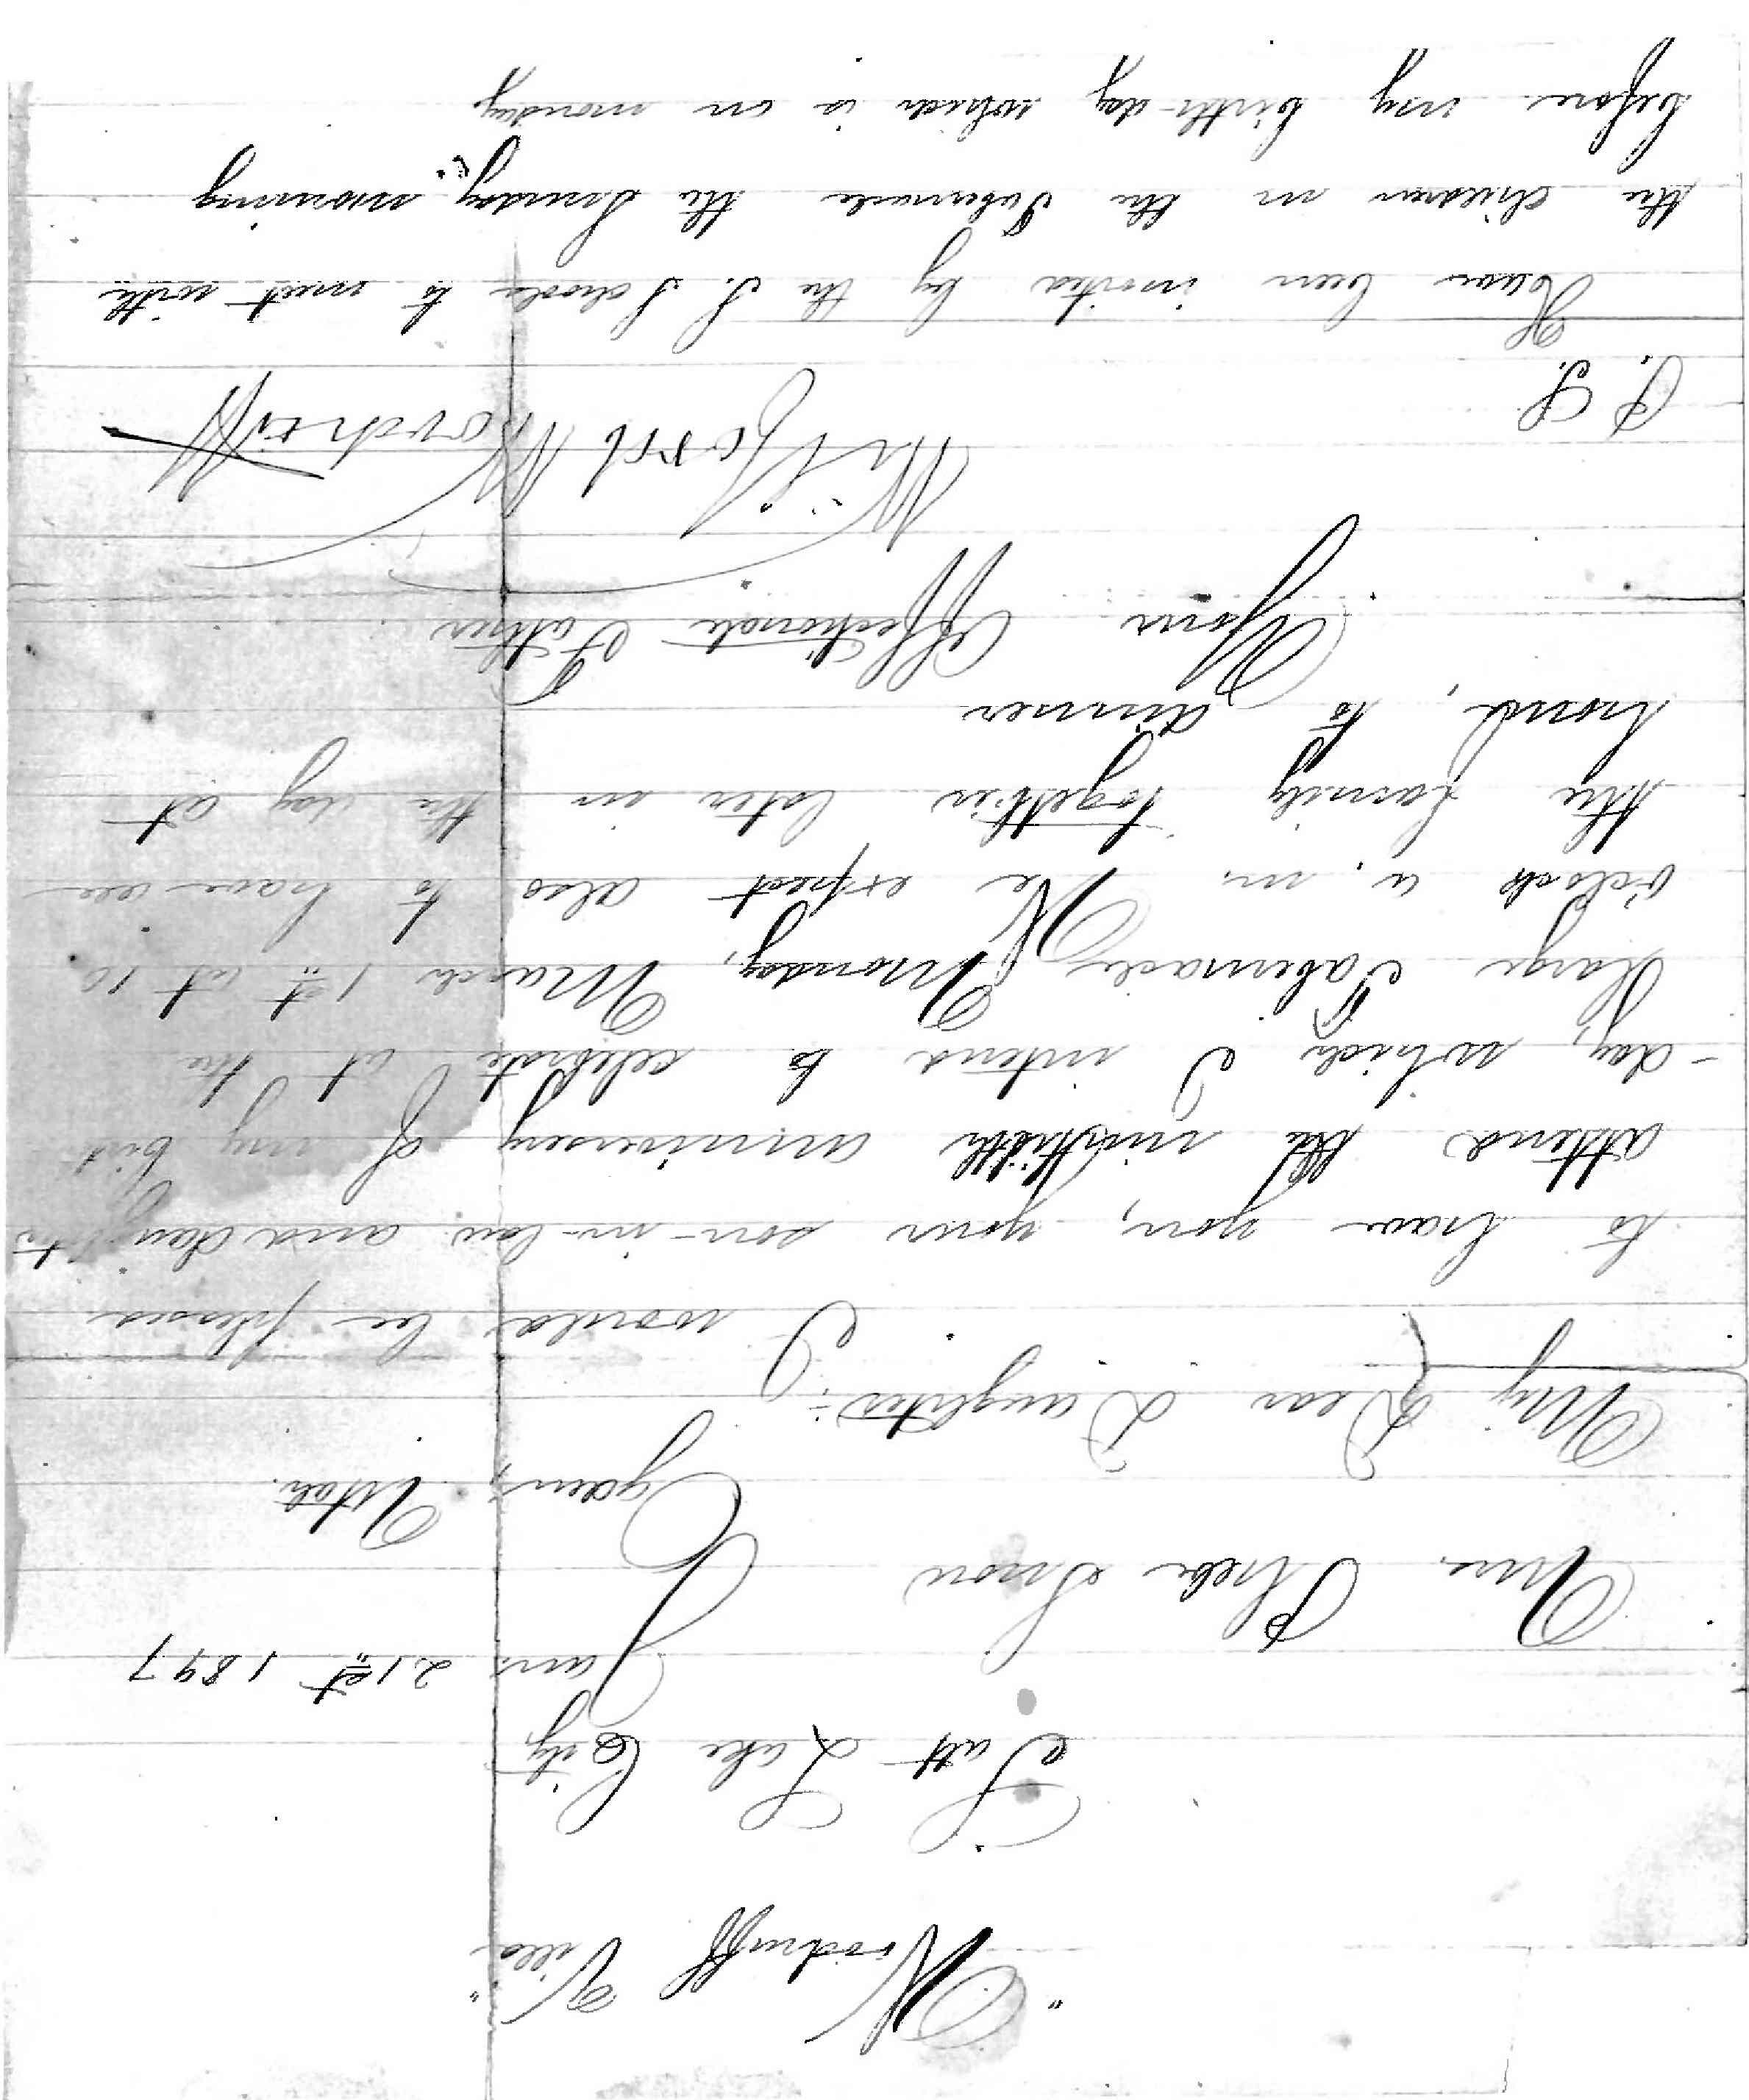 "Woodruff Villa"
Salt Lake City
Jan. 21st 1897
Mrs. Phebe Snow
Ogden, Utah.
My Dear Daughter:-
I would be pleased
to have you, your son-in-law and daughter
attend the ninetieth anniversary of my birth
-day, which I intend to celebrate at the
Large Tabernacle, Monday, March 1st at 10
o'clock a.m. We expect also to have all
the family together later in the day at
home, to dinner
Your Affectionate Father
Wilford Woodruff
P.S.
Have been invited by the S. Schools to meet with
the children in the Tabernacle the Sunday morning
before my birth-day which is on monday